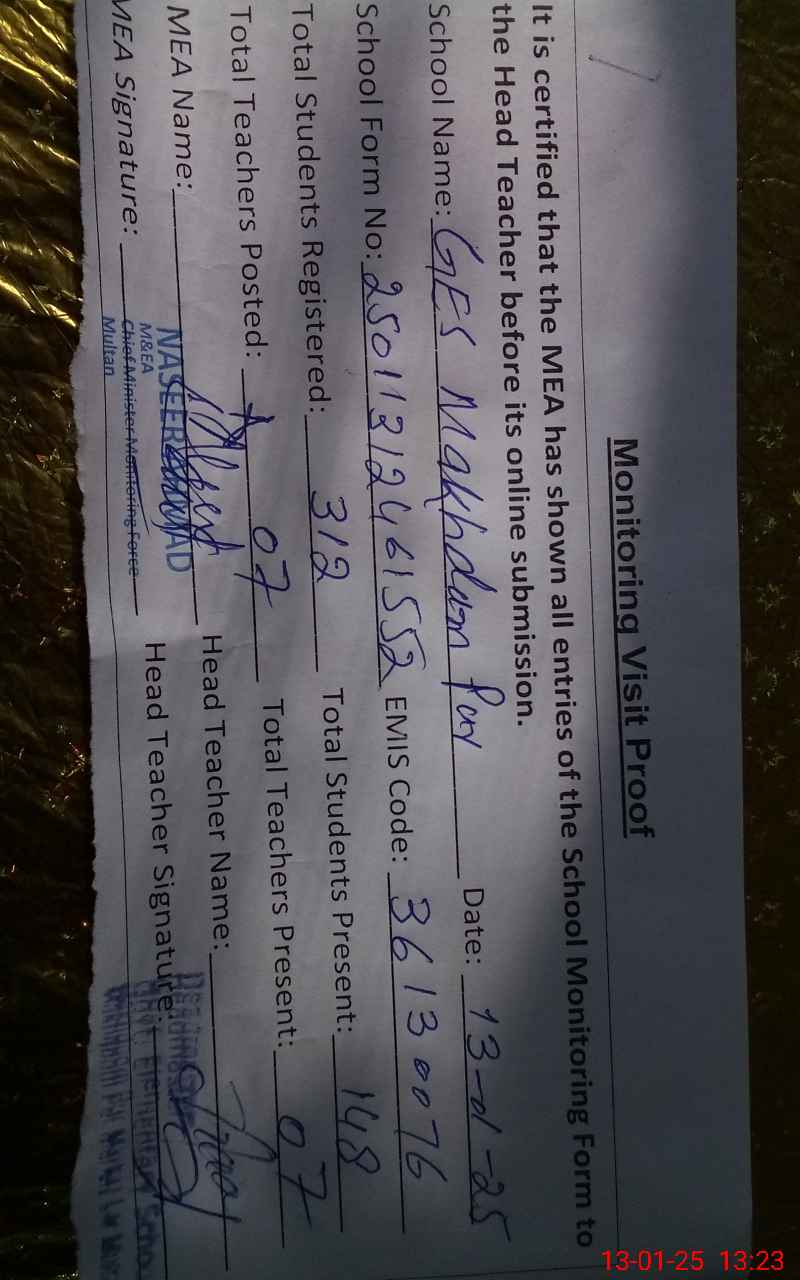 Monitoring Visit Proof
It is certified that the MEA has shown all entries of the School Monitoring Form to
the Head Teacher before its online submission.
School Name: GES Makhdum Pur Date: 13-01-25
School Form No: 25011312461552 EMIS Code: 36130076
Total Students Registered: 312 Total Students Present: 148
Total Teachers Posted: 07 Total Teachers Present: 07
MEA Name: NASEER Head Teacher Name:
M&EA
MEA Signature: Chief Minister Monitoring Force Head Teacher Signature:
Multan
13-01-25 13:23